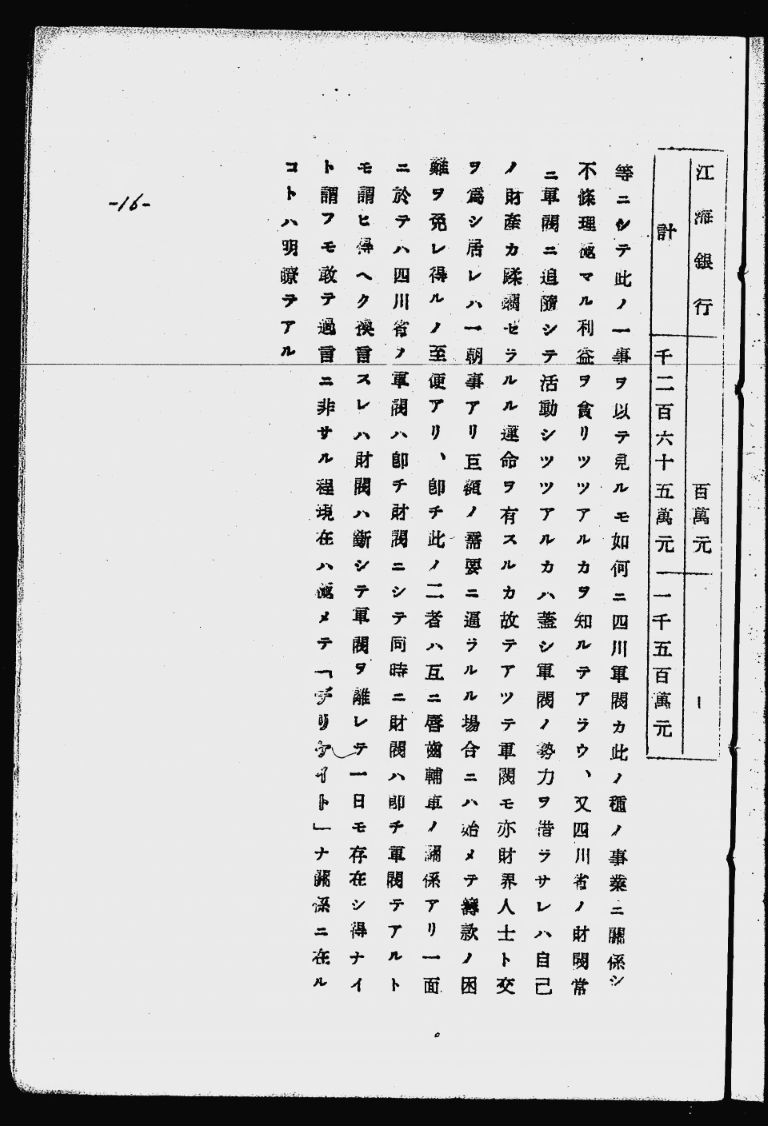 江海銀行 百萬元 ー
計 千二百六十五萬元 一千五百萬元
等ニシテ此ノ一事ヲ以テ見ルモ如何ニ四川軍閥カ此ノ種ノ事業ニ關係シ
不條理極マル利益ヲ貪リツツアルカヲ知ルテアラウ、又四川省ノ財閥常
ニ軍閥ニ追隨シテ活動シツツアルカハ蓋シ軍閥ノ勢力ヲ借ラサレハ自己
ノ財產カ蹂躙セラルル運命ヲ有スルカ故テアツテ軍閥モ亦財界人士ト交
ヲ爲シ居レハ一朝事アリ巨額ノ需要ニ逼ラルル場合ニハ始メテ籌款ノ困
難ヲ免レ得ルノ至便アリ、卽チ此ノ二者ハ互ニ唇齒輔車ノ關係アリ一面
ニ於テハ四川省ノ軍閥ハ卽チ財閥ニシテ同時ニ財閥ハ卽チ軍閥テアルト
モ謂ヒ得ヘク換言スレハ財閥ハ斷シテ軍閥ヲ離レテ一日モ存在シ得ナイ
ト謂フモ敢テ過言ニ非サル程現在ハ極メテ「デリケイト」ナ關係ニ在ル
コトハ明瞭テアル
-16-